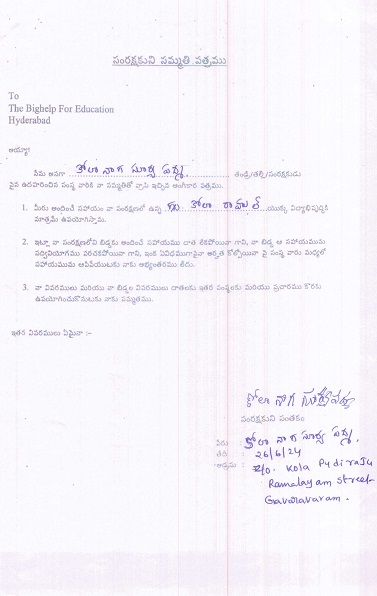 సంరక్షకుని సమ్మతి పత్రము
To
The Bighelp For Education
Hyderabad
అయ్యా!
నేను అనగా కోలా నాగ సూర్య పద్మ తండ్రి/తల్లి/సంరక్షకుడు
పైన ఉదహరించిన సంస్థ వారికి నా సమ్మతితో వ్రాసి ఇచ్చిన అంగీకార పత్రము.
1. మీరు అందించే సహాయం నా సంరక్షణలో ఉన్న కోలా యొక్క విద్యాభివృద్ధికి
మాత్రమే ఉపయోగిస్తాను.
2. ఇట్లా నా సంరక్షణలోని బిడ్డకు అందించే సహాయము దాత లేకపోయినా గాని, నా బిడ్డ ఆ సహాయమును
సద్వినియోగము పరచకపోయినా గాని, ఇంక ఏవిధముగానైనా అర్హత కోల్పోయినా పై సంస్థ వారు మధ్యలో
సహాయమును ఆపివేయుటకు నాకు అభ్యంతరము లేదు.
3. నా వివరములు మరియు నా బిడ్డల వివరములు దాతలకు ఇతర సంస్థలకు మరియు ప్రచారము కొరకు
ఉపయోగించుకొనుటకు నాకు సమ్మతము.
ఇతర వివరములు ఏమైనా :-
కోలా నాగ సూర్య పద్మ
సంరక్షకుని సంతకం
పేరు : కోలా నాగ సూర్య పద్మ
తేది : 26/6/24
అడ్రసు : Kola Pydiraju
Ramalayam Street
Gavaravaram.